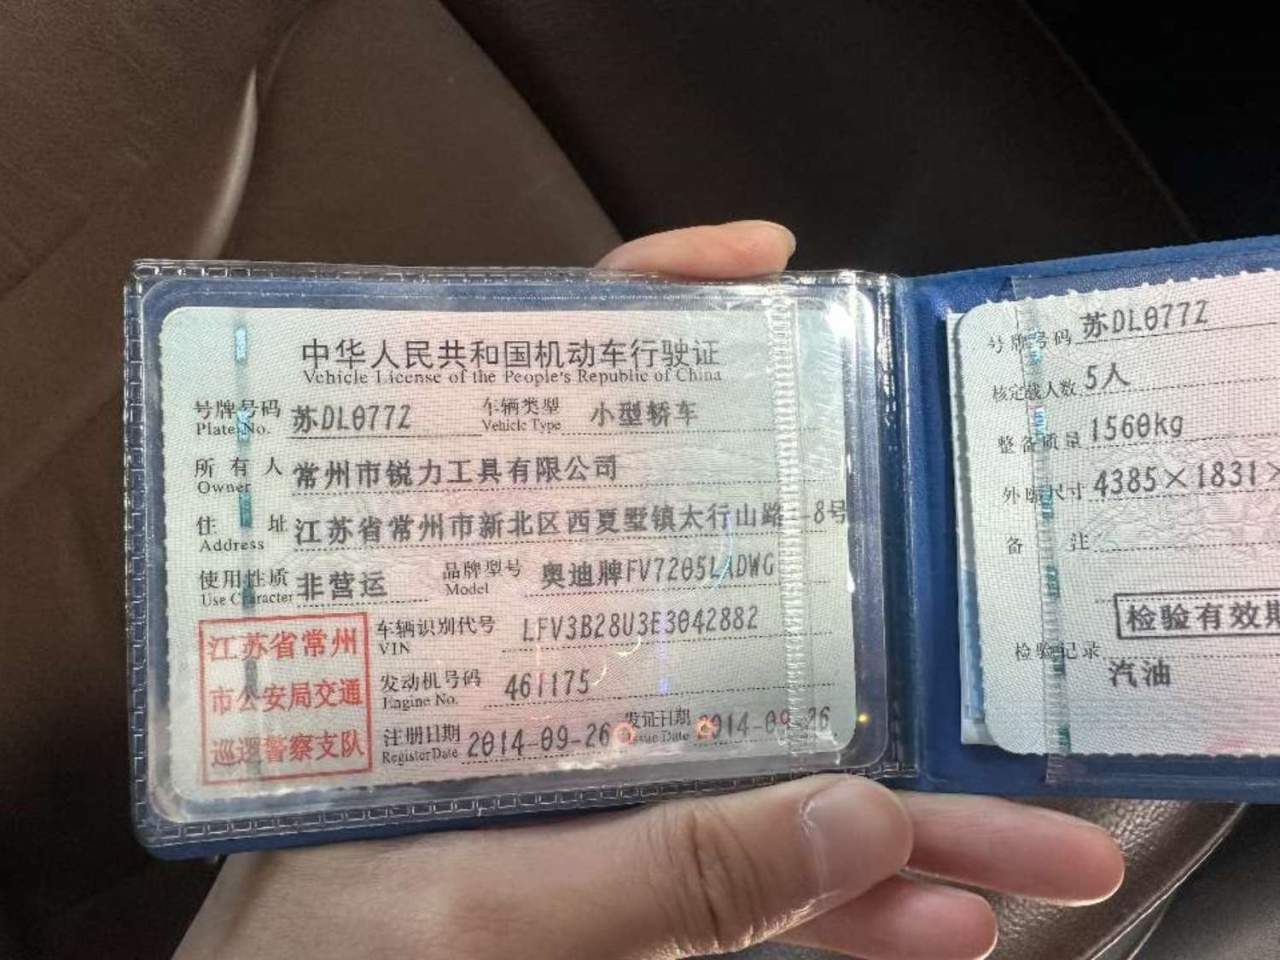 中华人民共和国机动车行驶证
Vehicle License of the People's Republic of China
号牌号码 苏DL077Z 车辆类型 小型轿车
Plate No. Vehicle Type
所有人 常州市锐力工具有限公司
Owner
住址 江苏省常州市新北区西夏墅镇太行山路 8号
Address
使用性质 非营运 品牌型号 奥迪牌FV7205LADWG
Use Character Model
江苏省常州
市公安局交通
巡逻警察支队
车辆识别代号 LFV3B28U3E3042882
VIN
发动机号码 461175
Engine No.
注册日期 2014-09-26 发证日期 2014-09-26
Register Date Issue Date
号牌号码 苏DL077Z
核定载人数 5人
整备质量 1560kg
外廓尺寸 4385×1831×
备注
检验有效期
检验记录
汽油